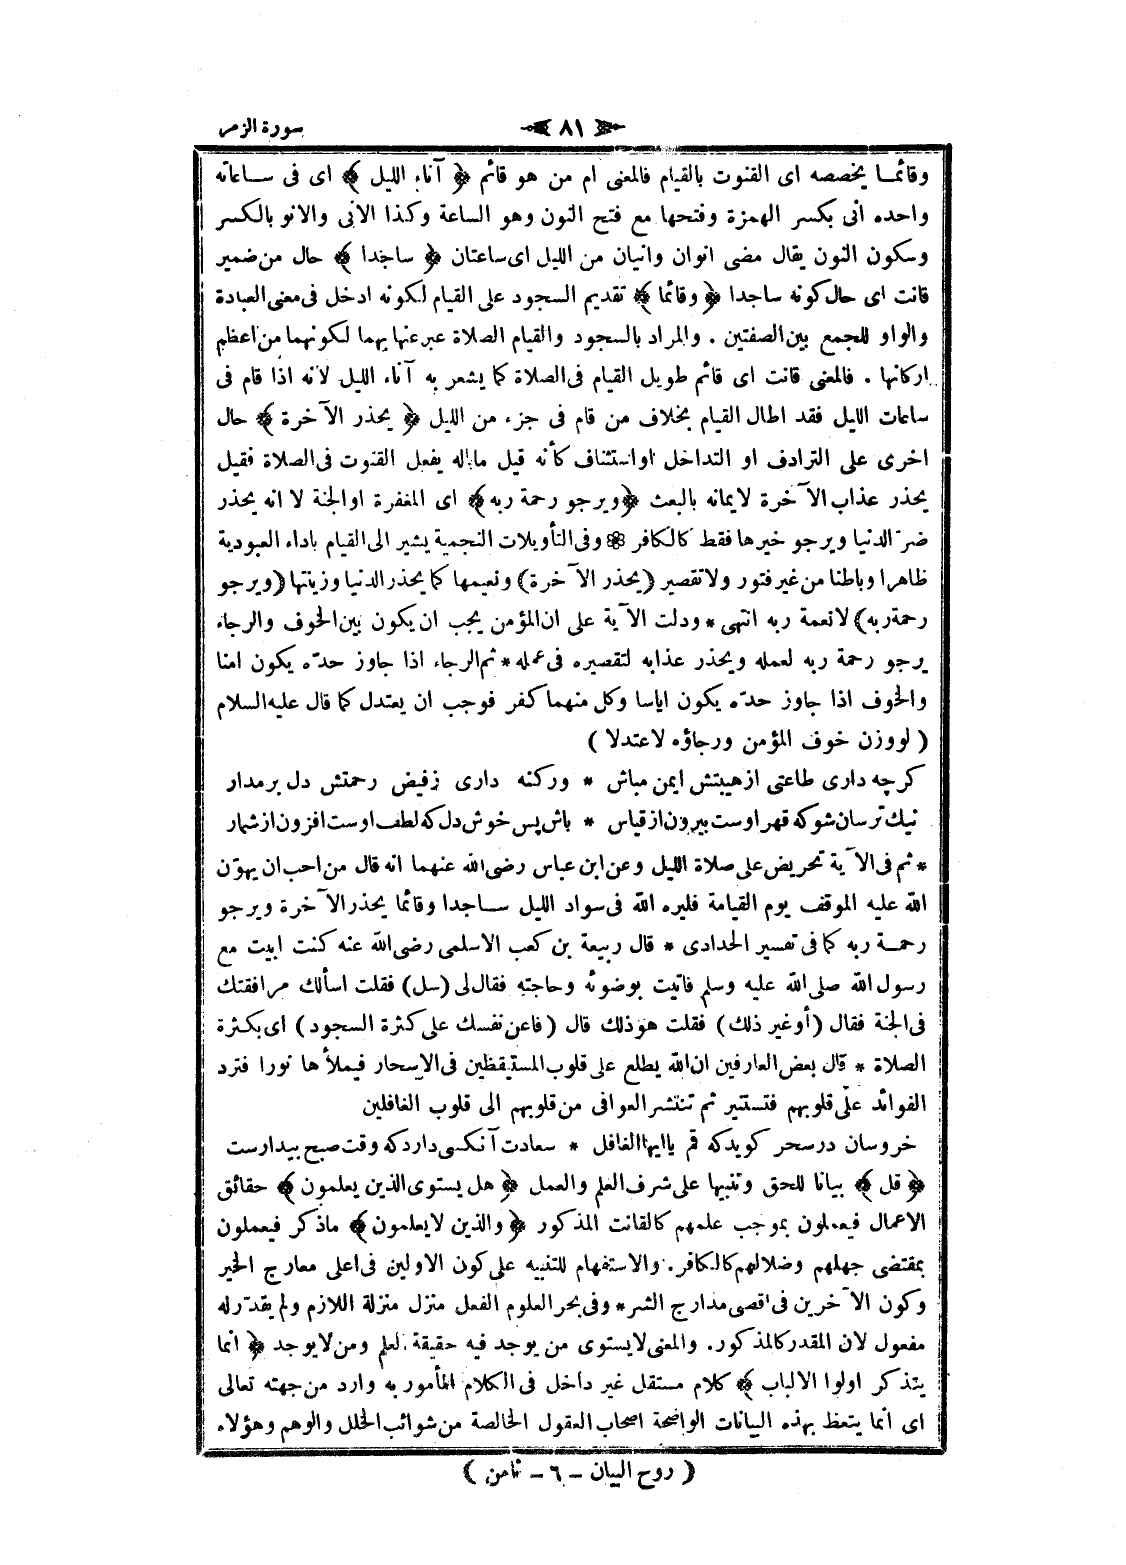 سورة الزمر
٨١
وقائمـا يخصصه اى القنوت بالقيام فالمعنى ام من هو قائم ﴿ آناء الليل ﴾ اى فى ساعاته
واحده انى بكسر الهمزة وفتحها مع فتح النون وهو الساعة وكذا الانى والانو بالكسر
وسكون النون يقال مضى انوان وانيان من الليل اى ساعتان ﴿ ساجدا ﴾ حال من ضمير
قانت اى حال كونه ساجدا ﴿ وقائما ﴾ تقديم السجود على القيام لكونه ادخل فى معنى العبادة
والواو للجمع بين الصفتين . والمراد بالسجود والقيام الصلاة عبر عنها بهما لكونهما من اعظم
اركانها . فالمعنى قانت اى قائم طويل القيام فى الصلاة كما يشعر به آناء الليل لانه اذا قام فى
ساعات الليل فقد اطال القيام بخلاف من قام فى جزء من الليل ﴿ يحذر الآخرة ﴾ حال
اخرى على الترادف او التداخل او استئناف كأنه قيل ماباله يفعل القنوت فى الصلاة فقيل
يحذر عذاب الآخرة لايمانه بالبعث ﴿ ويرجو رحمة ربه ﴾ اى المغفرة اوالجنة لا انه يحذر
ضرّ الدنيا ويرجو خيرها فقط كالكافر ❀ وفى التأويلات النجمية يشير الى القيام باداء العبودية
ظاهرا وباطنا من غير فتور ولا تقصير (يحذر الآخرة) ونعيمها كما يحذر الدنيا وزينتها (ويرجو
رحمة ربه) لا نعمة ربه انتهى * ودلت الآية على ان المؤمن يجب ان يكون بين الخوف والرجاء
يرجو رحمة ربه لعمله ويحذر عذابه لتقصيره فى عمله * ثم الرجاء اذا جاوز حدّه يكون امنا
والخوف اذا جاوز حدّه يكون اياسا وكل منهما كفر فوجب ان يعتدل كما قال عليه السلام
( لو وزن خوف المؤمن ورجاؤه لاعتدلا )
كرچه دارى طاعتى از هيبتش ايمن مباش * وركنه دارى زفيض رحمتش دل برمدار
نيك ترسان شو كه قهر اوست بيرون از قياس * باش پس خوش دل كه لطف اوست افزون از شمار
* ثم فى الآية تحريض على صلاة الليل وعن ابن عباس رضى الله عنهما انه قال من احب ان يهوّن
الله عليه الموقف يوم القيامة فليره الله فى سواد الليل ساجدا وقائما يحذر الآخرة ويرجو
رحمة ربه كما فى تفسير الحدادى * قال ربيعة بن كعب الاسلمى رضى الله عنه كنت ابيت مع
رسول الله صلى الله عليه وسلم فاتيت بوضوئه وحاجته فقال لى (سل) فقلت اسألك مرافقتك
فى الجنة فقال (أو غير ذلك) فقلت هو ذلك قال (فاعن نفسك على كثرة السجود) اى بكثرة
الصلاة * قال بعض العارفين ان الله يطلع على قلوب المستيقظين فى الاسحار فيملأها نورا فترد
الفوائد على قلوبهم فتستنير ثم تنتشر العوافى من قلوبهم الى قلوب الغافلين
خروسان درسحر كويدكه قم ياايها الغافل * سعادت آنكسى داردكه وقت صبح بيدارست
﴿ قل ﴾ بيانا للحق وتنبيها على شرف العلم والعمل ﴿ هل يستوى الذين يعلمون ﴾ حقائق
الاعمال فيعملون بموجب علمهم كالقانت المذكور ﴿ والذين لايعلمون ﴾ ماذكر فيعملون
بمقتضى جهلهم وضلالهم كالكافر. والاستفهام للتنبيه على كون الاولين فى اعلى معارج الخير
وكون الآخرين فى اقصى مدارج الشر * وفى بحر العلوم الفعل منزل منزلة اللازم ولم يقدّر له
مفعول لان المقدر كالمذكور. والمعنى لايستوى من يوجد فيه حقيقة العلم ومن لايوجد ﴿ انما
يتذكر اولوا الالباب ﴾ كلام مستقل غير داخل فى الكلام المأمور به وارد من جهته تعالى
اى انما يتعظ بهذه البيانات الواضحة اصحاب العقول الخالصة من شوائب الخلل والوهم وهؤلاء
( روح البيان – ٦ – ثامن )